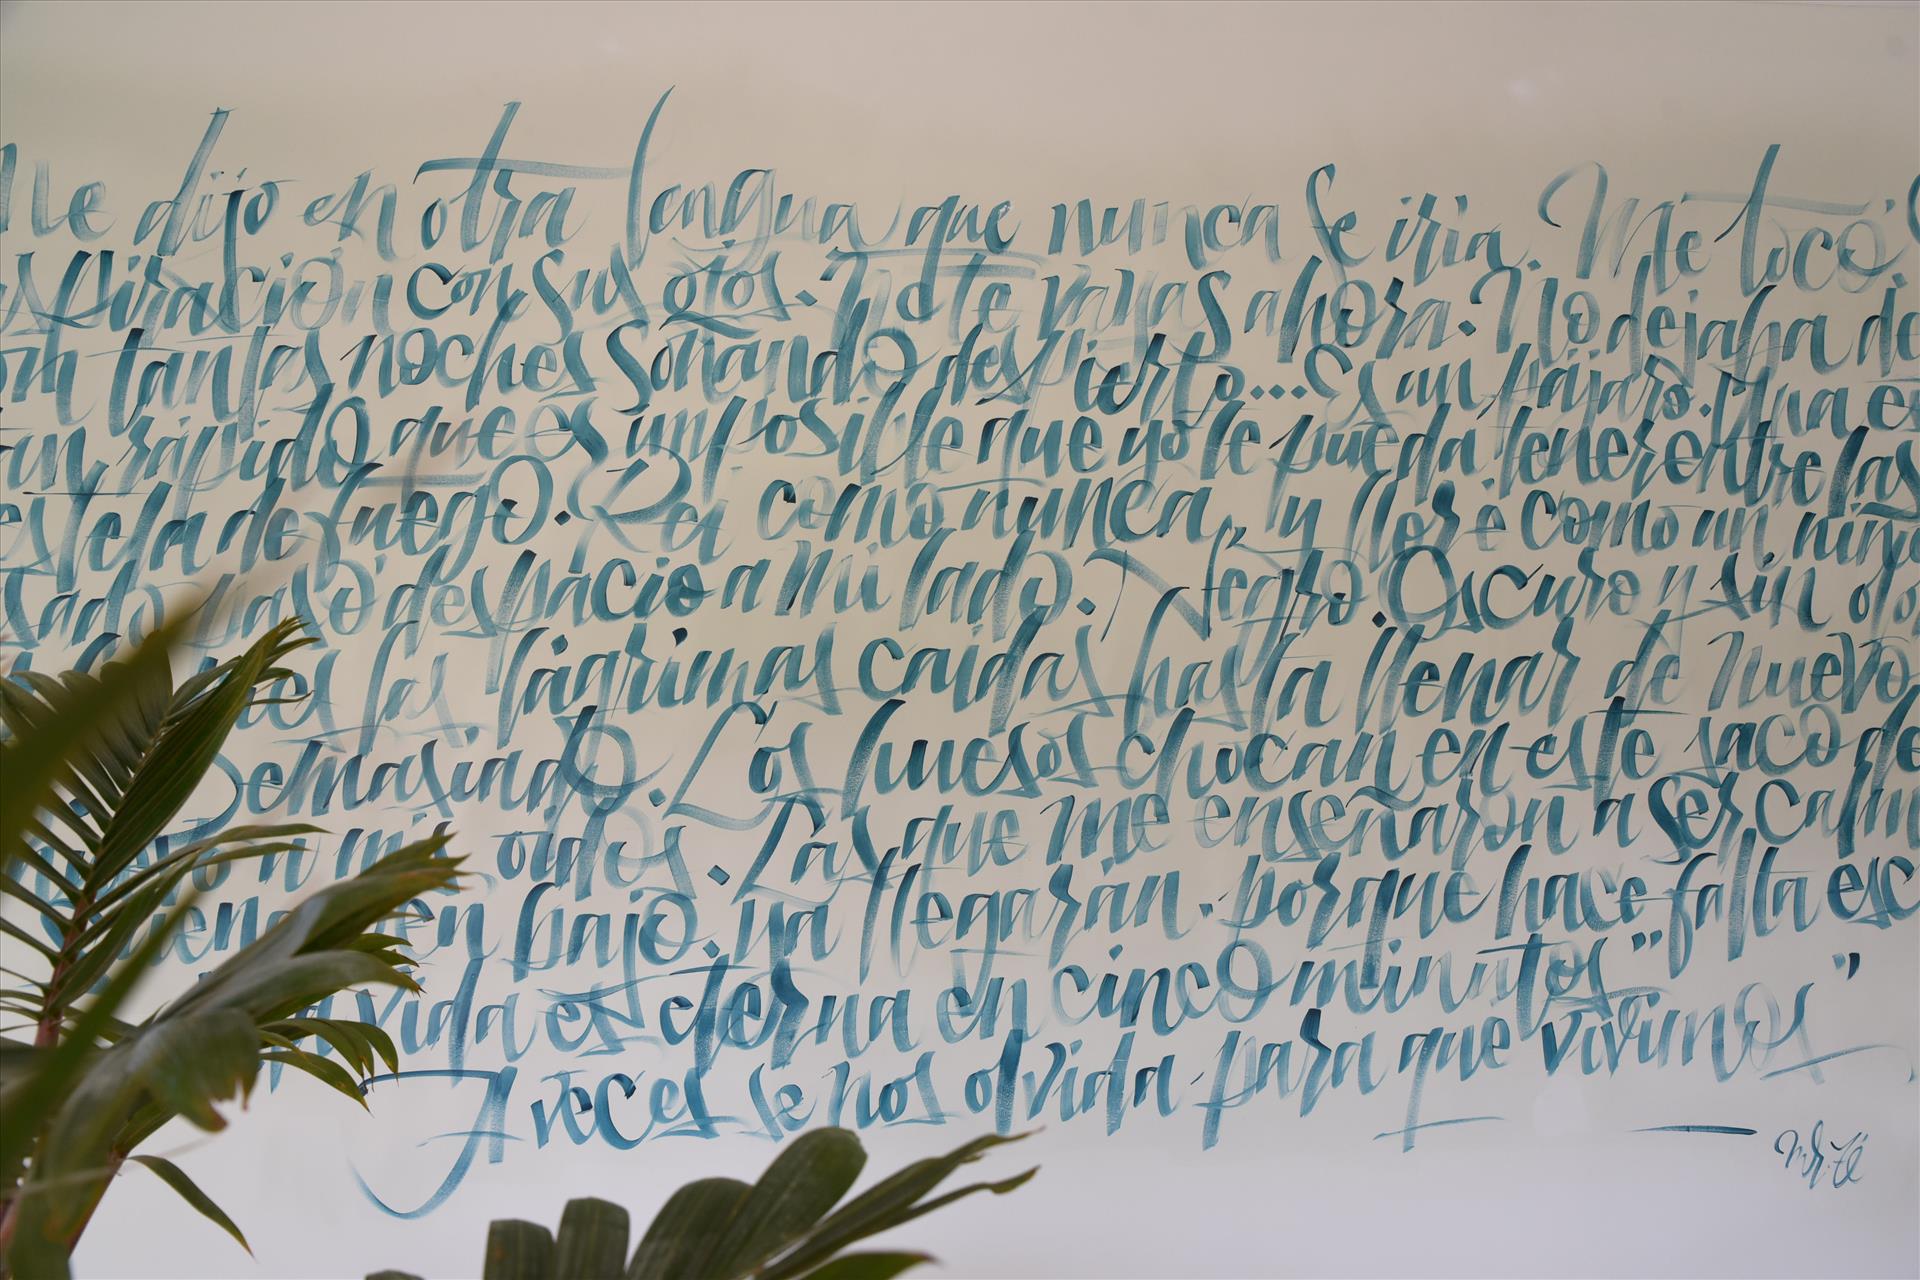 Me dijo en otra lengua que nunca se iria. Me tocó
con sus ojos. No te vayas ahora. No dejaba de
tantas noches soñando despierto... Es un pájaro. Una
rápido que es imposible que yo le pueda tener entre las
estela de fuego. Reí como nunca, y lloré como un niño
pasó despacio a mi lado. Negro. Oscuro y sin
las lágrimas caídas hasta llenar de nuevo
Demasiado. Los huesos chocan en este saco de
mis oidos. Las que me enseñaron a ser
en bajo. ya llegarán. porque hace falta
vida es eterna en cinco minutos" "
A veces se nos olvida para que vivimos
Mr. Zé